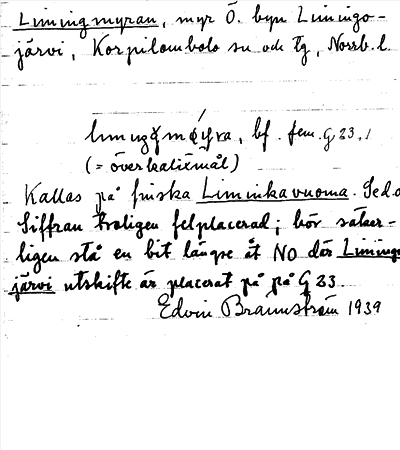 Limingmyran, myr Ö. byn Limingo-
järvi, Korpilombolo sn och tg, Norrb. l.
bf. fem. G 23,1
(= överkalixmål)
Kallas på finska Liminkavuoma. Se d.o
Siffran troligen felplacerad; bör säker-
ligen stå en bit längre åt NO där Limingo
järvi utskifte är placerat på på G 23.
Edvin Brännström 1939